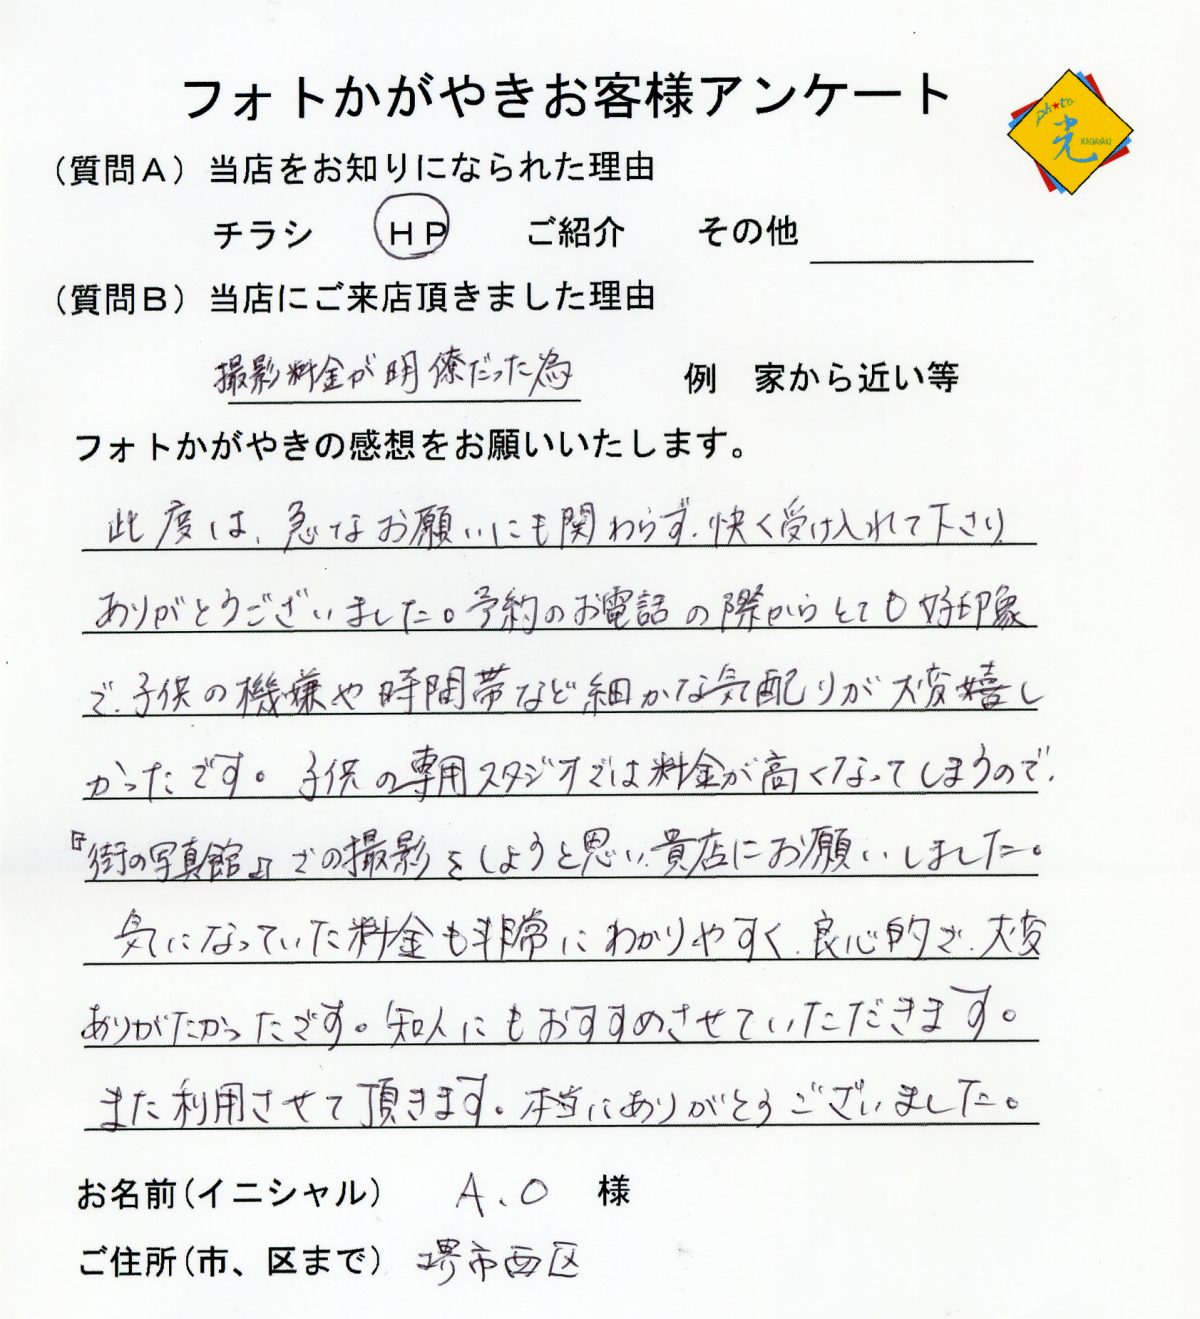 フォトかがやきお客様アンケート
ph★to
光
KAGAYAKI
(質問A) 当店をお知りになられた理由
チラシ HP ご紹介 その他
(質問B) 当店にご来店頂きました理由
撮影料金が明僚だった為 例 家から近い等
フォトかがやきの感想をお願いいたします。
此度は、急なお願いにも関わらず、快く受け入れて下さり
ありがとうございました。予約のお電話の際からとても好印象
で、子供の機嫌や時間帯など細かな気配りが大変嬉し
かったです。子供の専用スタジオでは料金が高くなってしまうので、
『街の写真館』での撮影をしようと思い、貴店にお願いしました。
気になっていた料金も非常にわかりやすく、良心的で、大変
ありがたかったです。知人にもおすすめさせていただきます。
また利用させて頂きます。本当にありがとうございました。
お名前(イニシャル) A.O 様
ご住所(市、区まで) 堺市西区